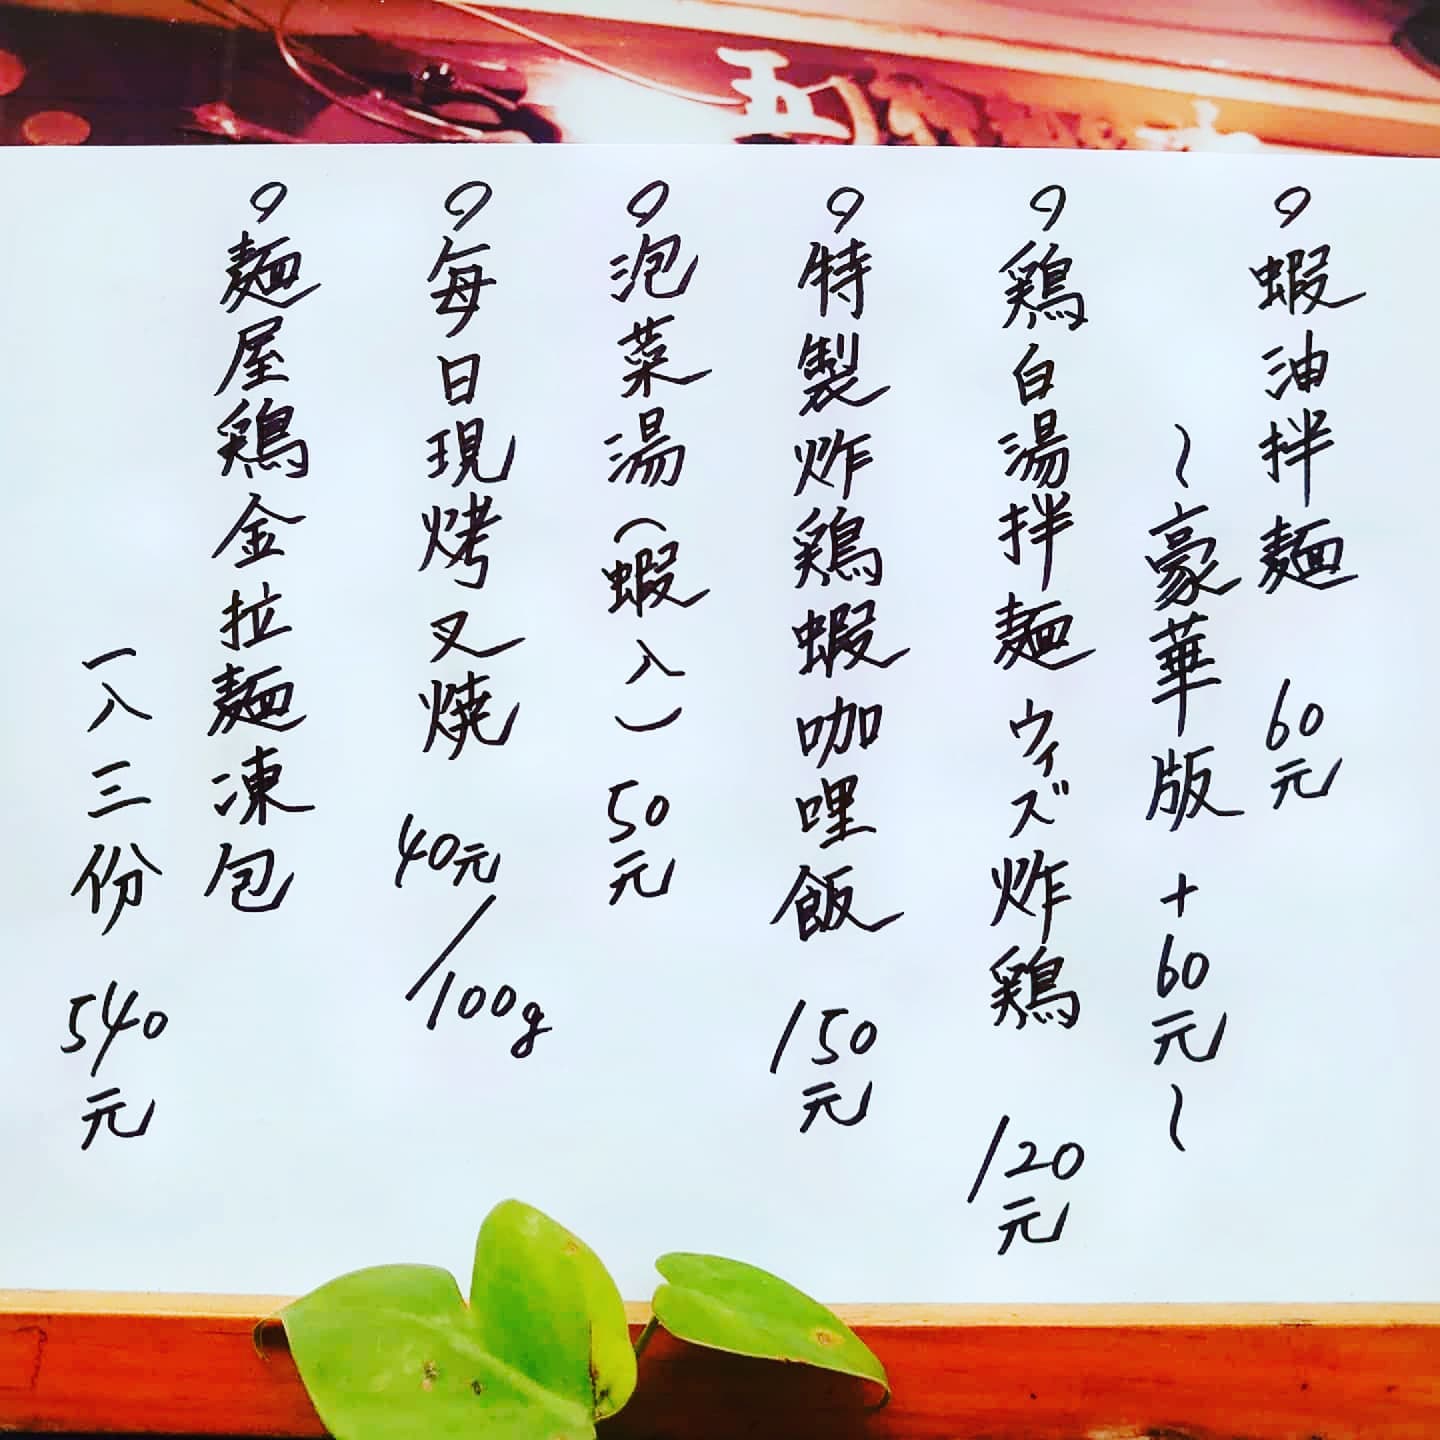 蝦油拌麺 60元
~豪華版 +60元~
鶏白湯拌麺 ウィズ炸鶏 120元
特製炸鶏蝦咖哩飯 150元
泡菜湯(蝦入) 50元
每日現烤叉燒 40元/100g
麺屋鶏金拉麺凍包
一八三份 540元
五